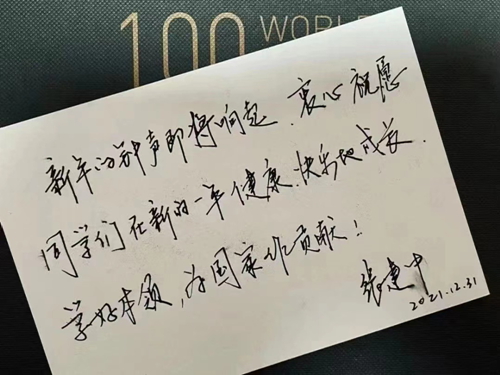 100 WORLD
新年的钟声即将响起、衷心祝愿
同学们在新的一年健康、快乐地成长、
学好本领，为国家作贡献！
张建中
2021.12.31